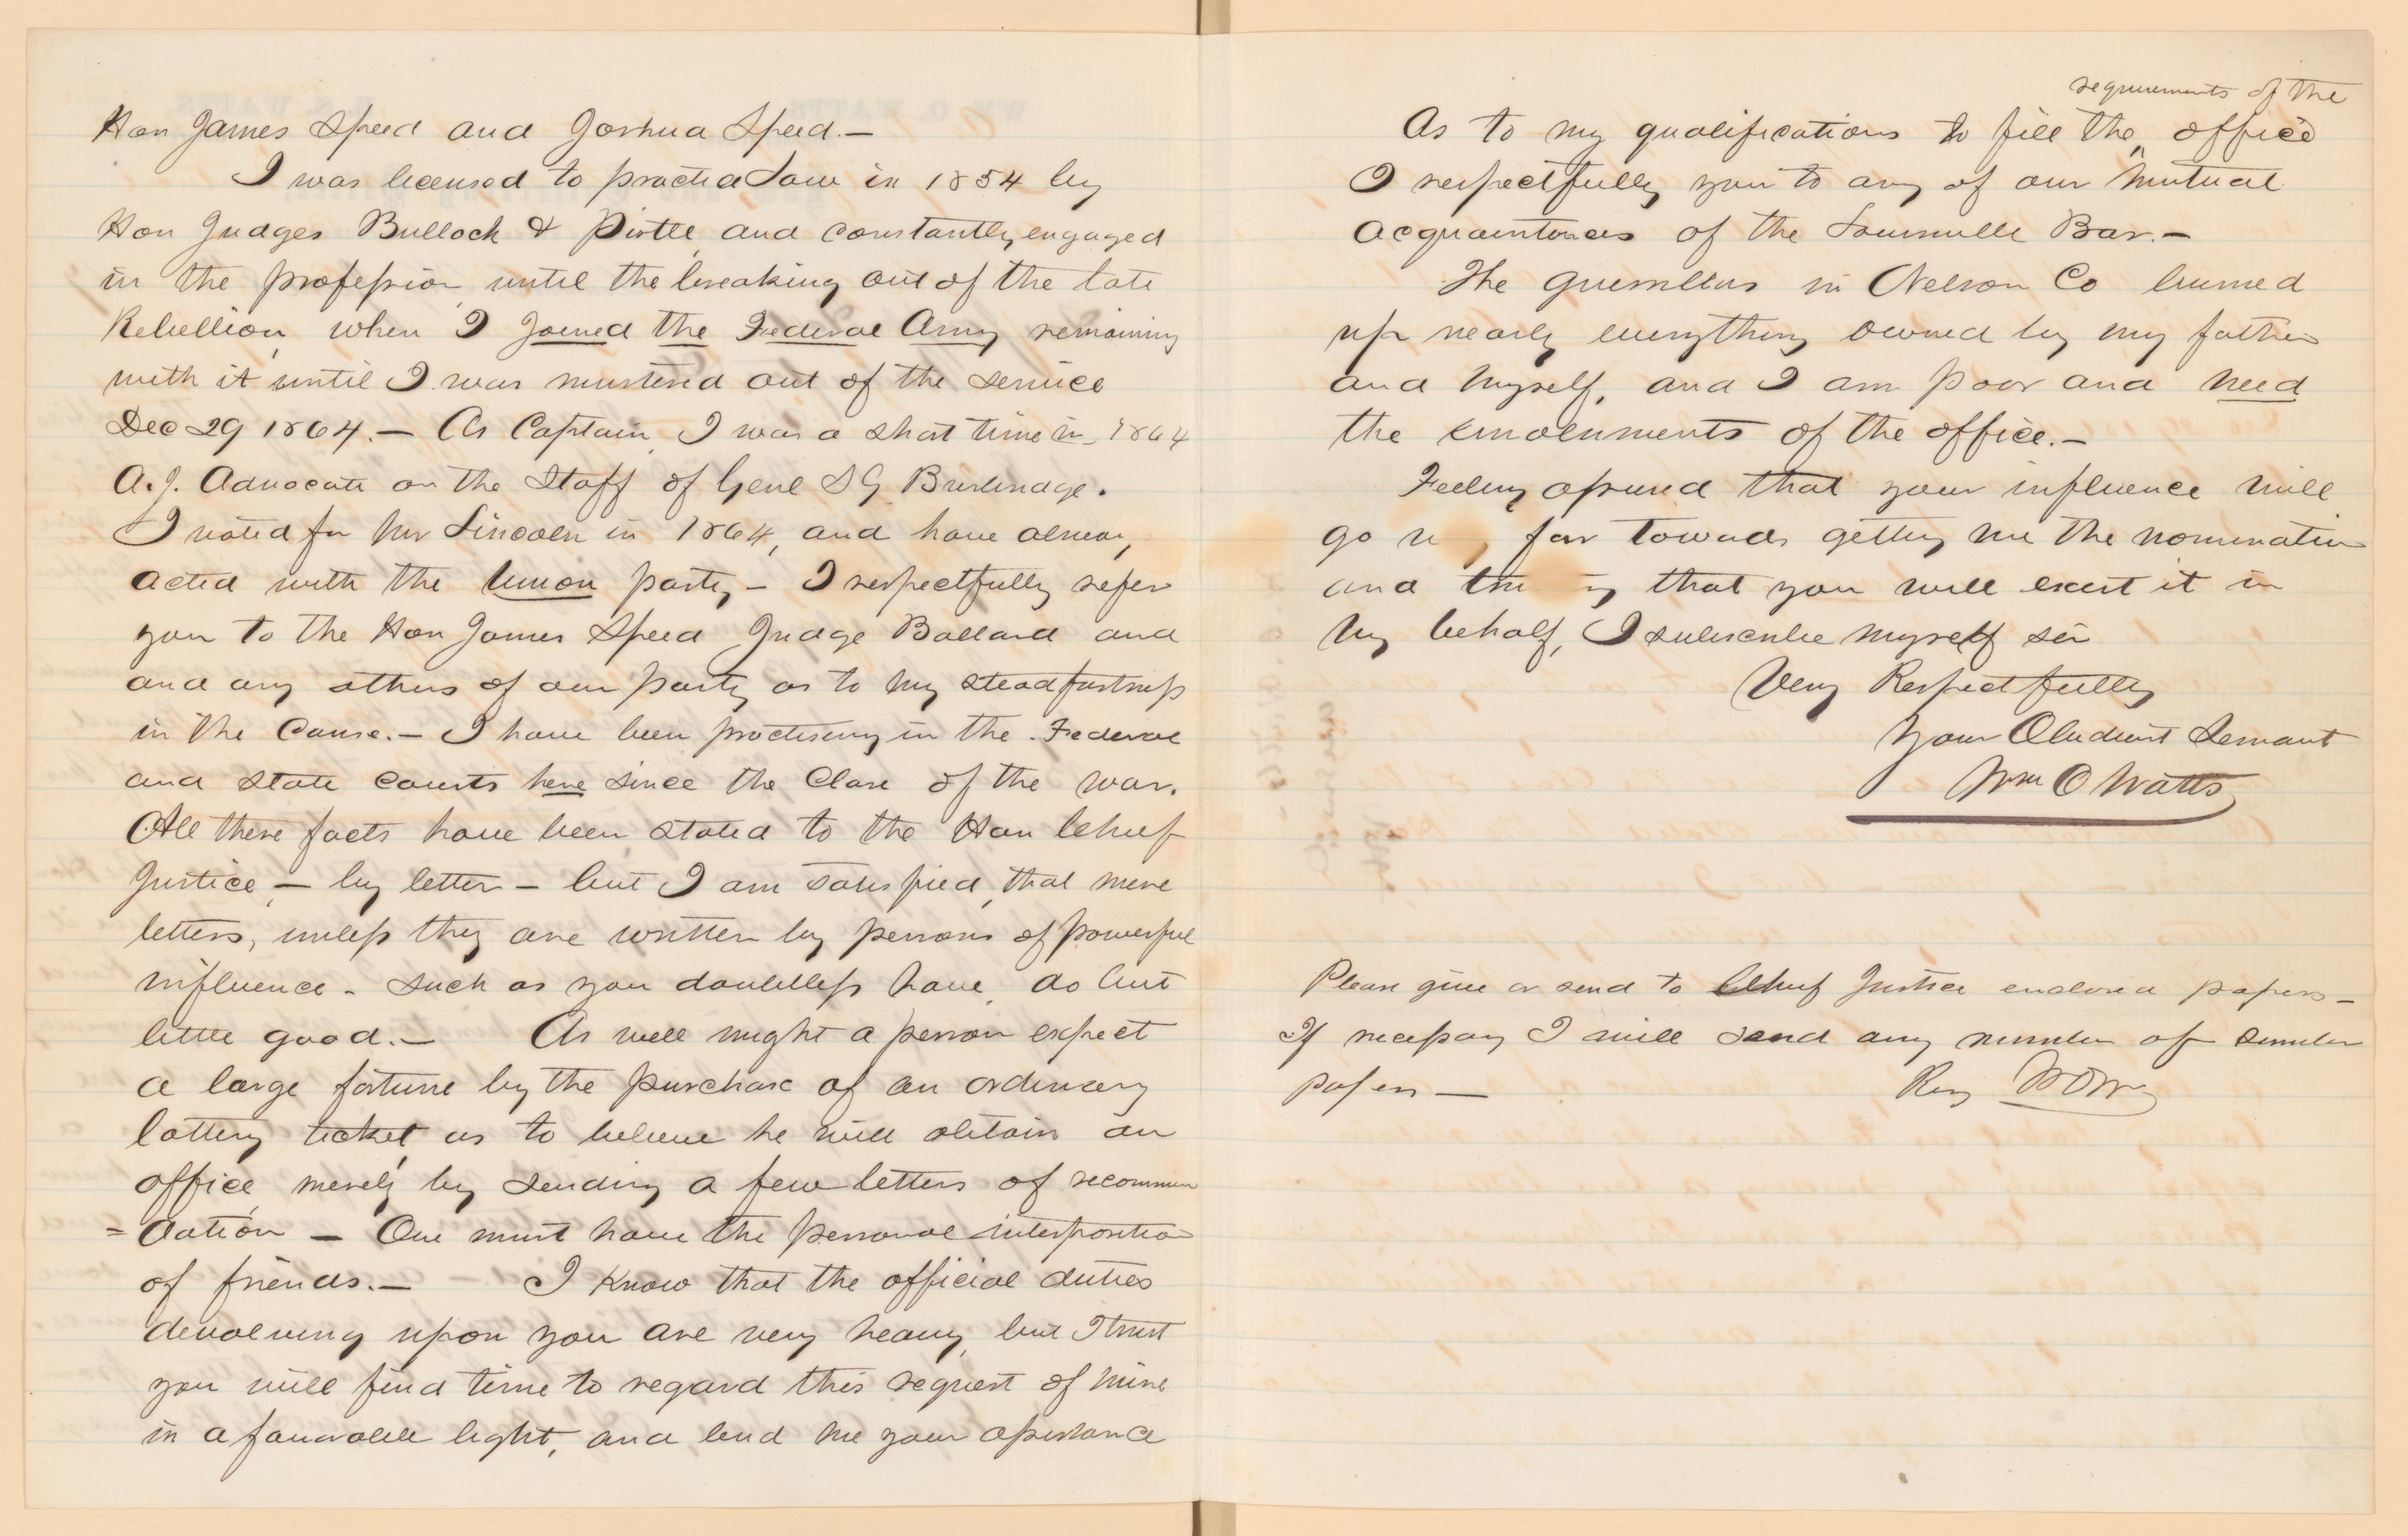 Hon James Speed and Joshua Speed.—
I was licensed to practice Law in 1854 by
Hon Judges Bullock & Pirtle, and constantly engaged
in the profession, until the breaking out of the late
Rebellion, when I joined the Federal Army remaining
with it until I was mustered out of the service
Dec 29 1864.— As Captain, I was a short time in 1864
A. J. Advocate on the Staff of Genl S G Burbridge.
I voted for Mr Lincoln in 1864, and have always
acted with the Union party,— I respectfully refer
you to the Hon James Speed Judge Ballard and
and any others of our party as to my steadfastness
in the Cause.— I have been practising in the Federal
and State Courts here since the Close of the war.
All these facts have been stated to the Hon Chief
Justice,— by letter— but I am satisfied, that mere
letters, unless they are written by persons of powerful
influence - such as you doubtless have, do but
little good.— As well might a person expect
a large fortune by the purchase of an ordinary
lottery ticket, as to believe he will obtain an
office, merely by sending a few letters of recommen
=dation — One must have the personal interposition
of friends.— I know that the official duties
devolving upon you are very heavy, but I trust
you will find time to regard this request of mine
in a favorable light, and lend me your assistance
requirements of the
As to my qualifications to fill the office
I respectfully you to any of our mutual
acquaintances of the Louisville Bar.—
The guerrillas in Nelson Co burned
up nearly everything owned by my father
and myself, and I am poor and need
the emoluments of the office.—
Feeling assured that your influence will
go far towards getting me the nomination
and that you will exert it in
my behalf, I subscribe myself sir
Very Respectfully
Your Obedient Servant
Wm O Watts
Please give or send to Chief Justice enclosed papers—
If necessary I will send any number of similar
papers —